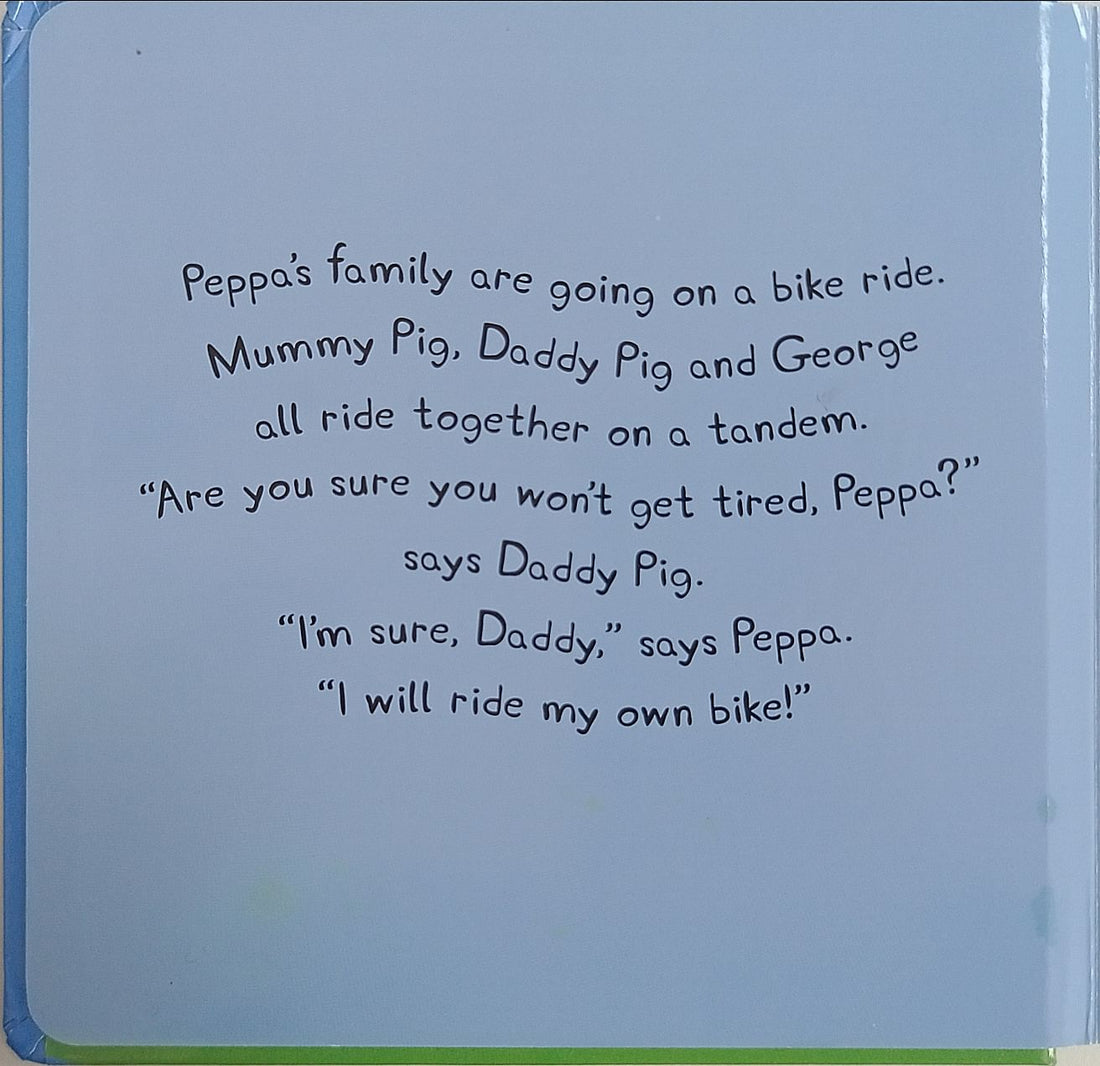 Peppa's family are going on a bike ride.
Mummy Pig, Daddy Pig and George
all ride together on a tandem.
“Are you sure you won't get tired, Peppa?”
says Daddy Pig.
“I'm sure, Daddy,” says Peppa.
“I will ride my own bike!”